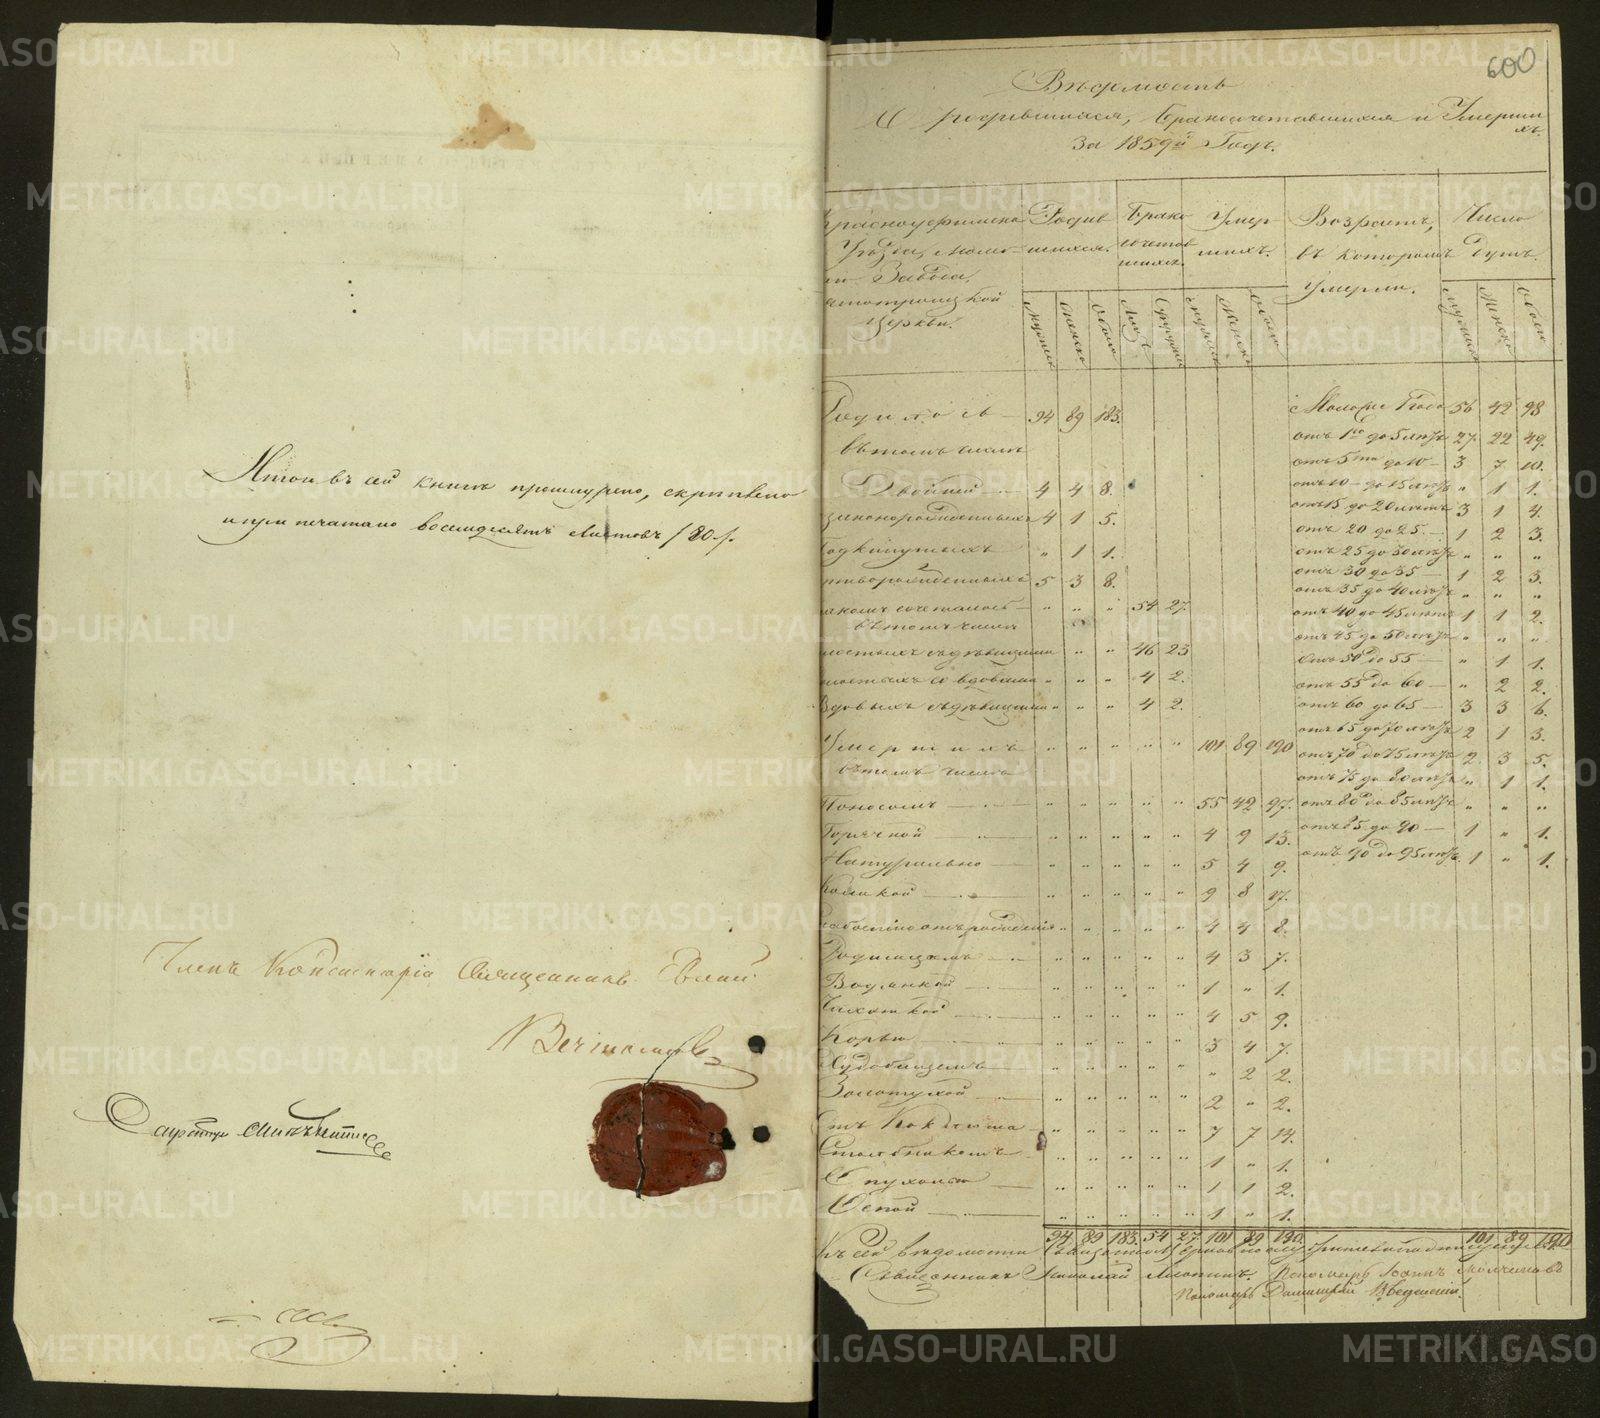 Итого въ сей книгѣ прошнурено, скрѣплено
и припечатано восемдесятъ листовъ /80./.
Членъ Консисторіи Священникъ
Секретарь
600
Вѣдомость
О родившихся, бракосочетавшихся и Умерши
хъ.
За 1859й Годъ.
Красноуфимска Родив Брако Умер Возрастъ, Число
Уѣзда, шихся. сочетав шихъ. въ которомъ Душъ
Завода, шихся. Умерли.
троицкой
Церкви.
Мужеска Женска Обоего Лицъ Мужеска Женска Обоего Мужеска Женска Обоего
Родилось 94 89 183. Моложе 1 года 56 42 98
въ томъ числѣ отъ 1го до 5 лѣтъ 27 22 49.
отъ 5ти до 10 3 7 10.
Двойней 4 4 8. отъ 10 до 15 лѣтъ " 1 1.
законнорожденныхъ 4 1 5. отъ 15 до 20 лѣтъ 3 1 4.
отъ 20 до 25. 1 2 3.
Подкинутыхъ " 1 1. отъ 25 до 30 лѣтъ " " "
мертворожденныхъ 5 3 8. отъ 30 до 35 1 2 3.
отъ 35 до 40 лѣтъ " " "
Бракомъ сочеталось " " " 54 27. отъ 40 до 45 лѣтъ 1 1 2.
въ томъ числѣ отъ 45 до 50 лѣтъ " " "
холостыхъ съ дѣвицами " " " 46 23 отъ 50 до 55 " 1 1.
холостыхъ со вдовами " " " 4 2. отъ 55 до 60 " 2 2.
Вдовыхъ съ дѣвицами " " " 4 2. отъ 60 до 65 3 3 6.
отъ 65 до 70 лѣтъ 2 1 3.
Умершихъ " " " " " 101 89 190 отъ 70 до 75 лѣтъ 2 3 5.
въ томъ числѣ отъ 75 до 80 лѣтъ " 1 1.
Поносомъ " " " " " 55 42 97. отъ 80 до 85 лѣтъ " " "
Горячкой " " " " " 4 9 13. отъ 85 до 90 1 " 1.
Натурально " " " " " 5 4 9. отъ 90 до 95 лѣтъ 1 " 1.
Коликой " " " " " 9 8 17.
Слабостію отъ рожденія " " " " " 4 4 8.
Родимцемъ " " " " " 4 3 7.
Водянкой " " " " " 1 " 1.
Чахоткой " " " " " 4 5 9.
Корью " " " " " 3 4 7.
Худобищемъ " " " " " " 2 2.
Золотухой " " " " " 2 " 2.
Отъ Коклюша " " " " " 7 7 14.
Столбнякомъ " " " " " 1 " 1.
Опухолью " " " " " 1 1 2.
Оспой " " " " " 1 " 1.
94 89 183. 54 27 101 89 190. 101 89 190
Къ сей вѣдомости
Священникъ Николай Пономарь Іоаннъ
Пономарь Димитрій Введенскій.